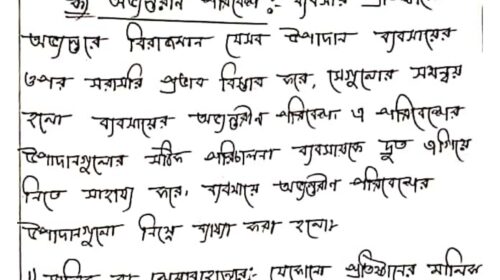 ক) অভ্যন্তরীন পরিবেশ:- ব্যবসায় প্রতিষ্ঠানের
অভ্যন্তরে বিরাজমান যেসব উপাদান ব্যবসায়ের
ওপর সরাসরি প্রভাব বিস্তার করে, সেগুলোর সমন্বয়
হলো ব্যবসায়ের অভ্যন্তরীন পরিবেশ। এ পরিবেশের
উপাদানগুলোর সঠিক পরিচালনা ব্যবসায়কে দ্রুত এগিয়ে
নিতে সাহায্য করে, ব্যবসায়ে অভ্যন্তরীন পরিবেশের
উপাদানগুলো নিম্নে ব্যাখ্যা করা হলো:
যেকোনো প্রতিষ্ঠানের মালিক